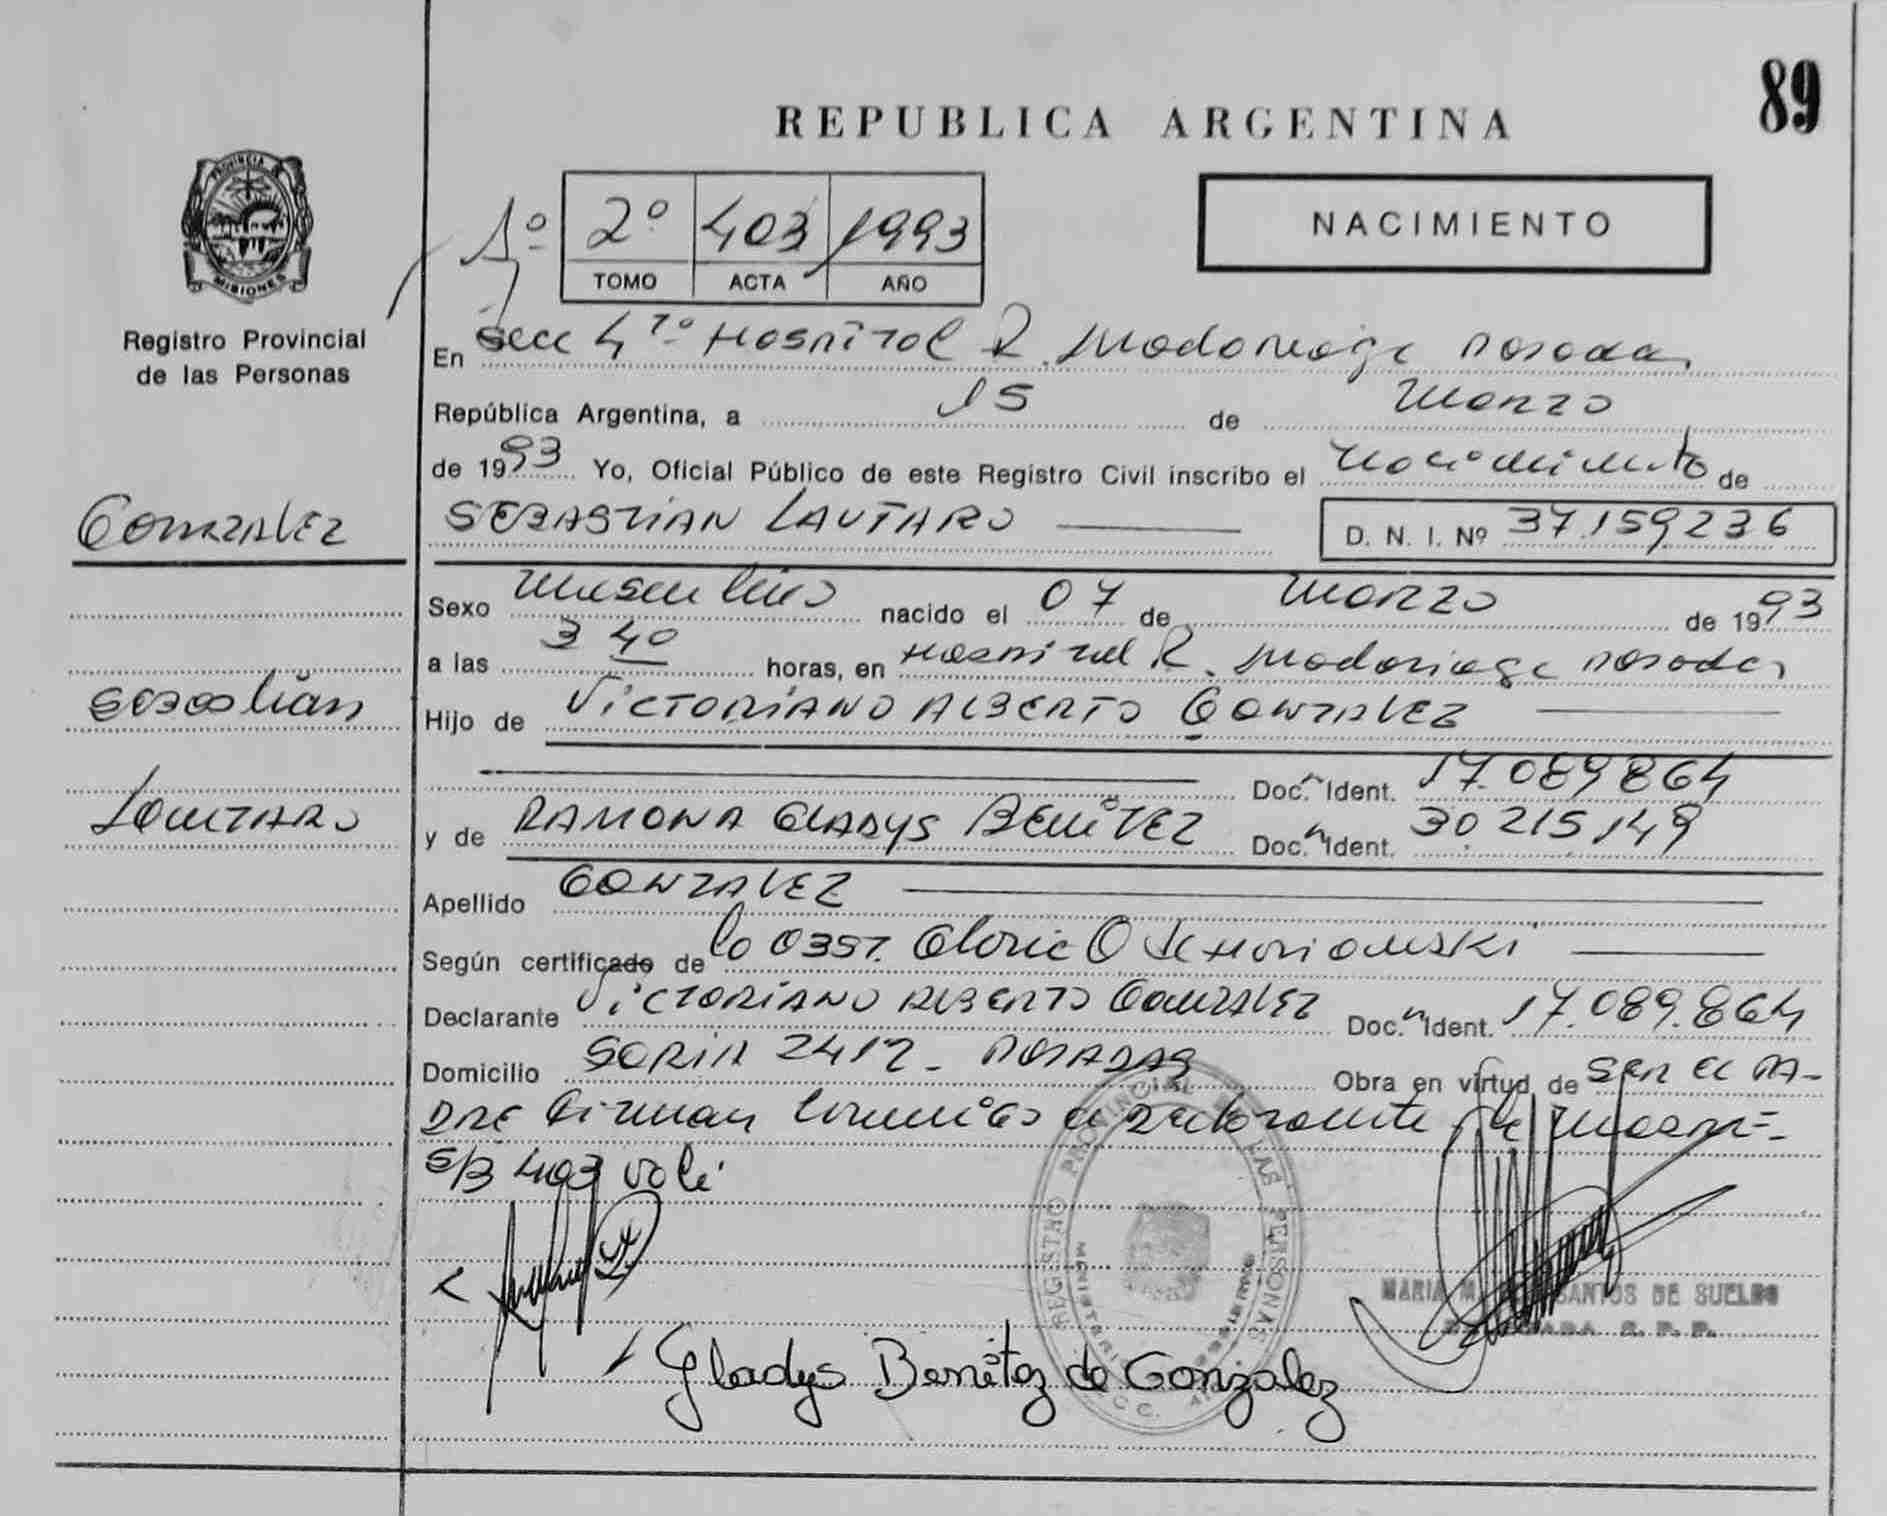 89
REPUBLICA ARGENTINA
PROVINCIA DE
MISIONES
Registro Provincial
de las Personas
1º
2º 403 1993
TOMO ACTA AÑO
NACIMIENTO
En Secc 4ta Hospital R. Madariaga Posadas
República Argentina, a 15 de Marzo
de 1993 Yo, Oficial Público de este Registro Civil inscribo el Nacimiento de
Gonzalez
SEBASTIAN LAUTARO
D. N. I. Nº 37.159.236
Sexo Masculino nacido el 07 de Marzo de 1993
a las 3 40 horas, en Hospital R. Madariaga Posadas
Sebastián
Hijo de VICTORIANO ALBERTO GONZALEZ
Doc. Ident. 17.089.864
LAUTARO
y de RAMONA GLADYS BENÍTEZ Doc. Ident. 30.215.149
Apellido GONZALEZ
Según certificado de la Obst. Gloria
Declarante VICTORIANO ALBERTO GONZALEZ Doc. Ident. 17.089.864
Domicilio SORIA 2412 - POSADAS Obra en virtud de SER EL PA-
DRE Firman el declarante
S/B 403 vale
REGISTRO PROVINCIAL DE LAS PERSONAS
MARIA SANTOS DE SUELDO
Gladys Benítez de Gonzalez